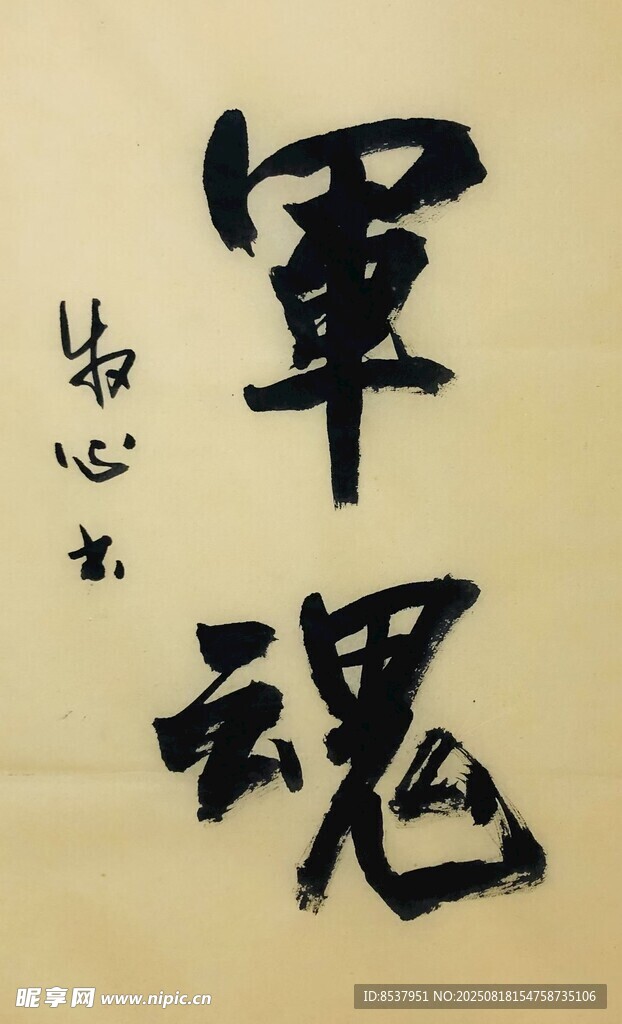 軍魂
牧心书
昵享网 www.nipic.cn
ID:8537951 NO:20250818154758735106